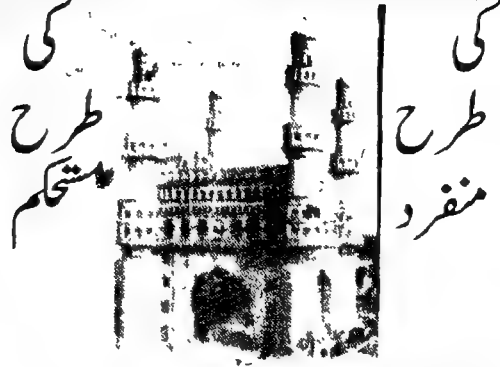 کی
طرح
منفرد
کی
طرح
مستحکم